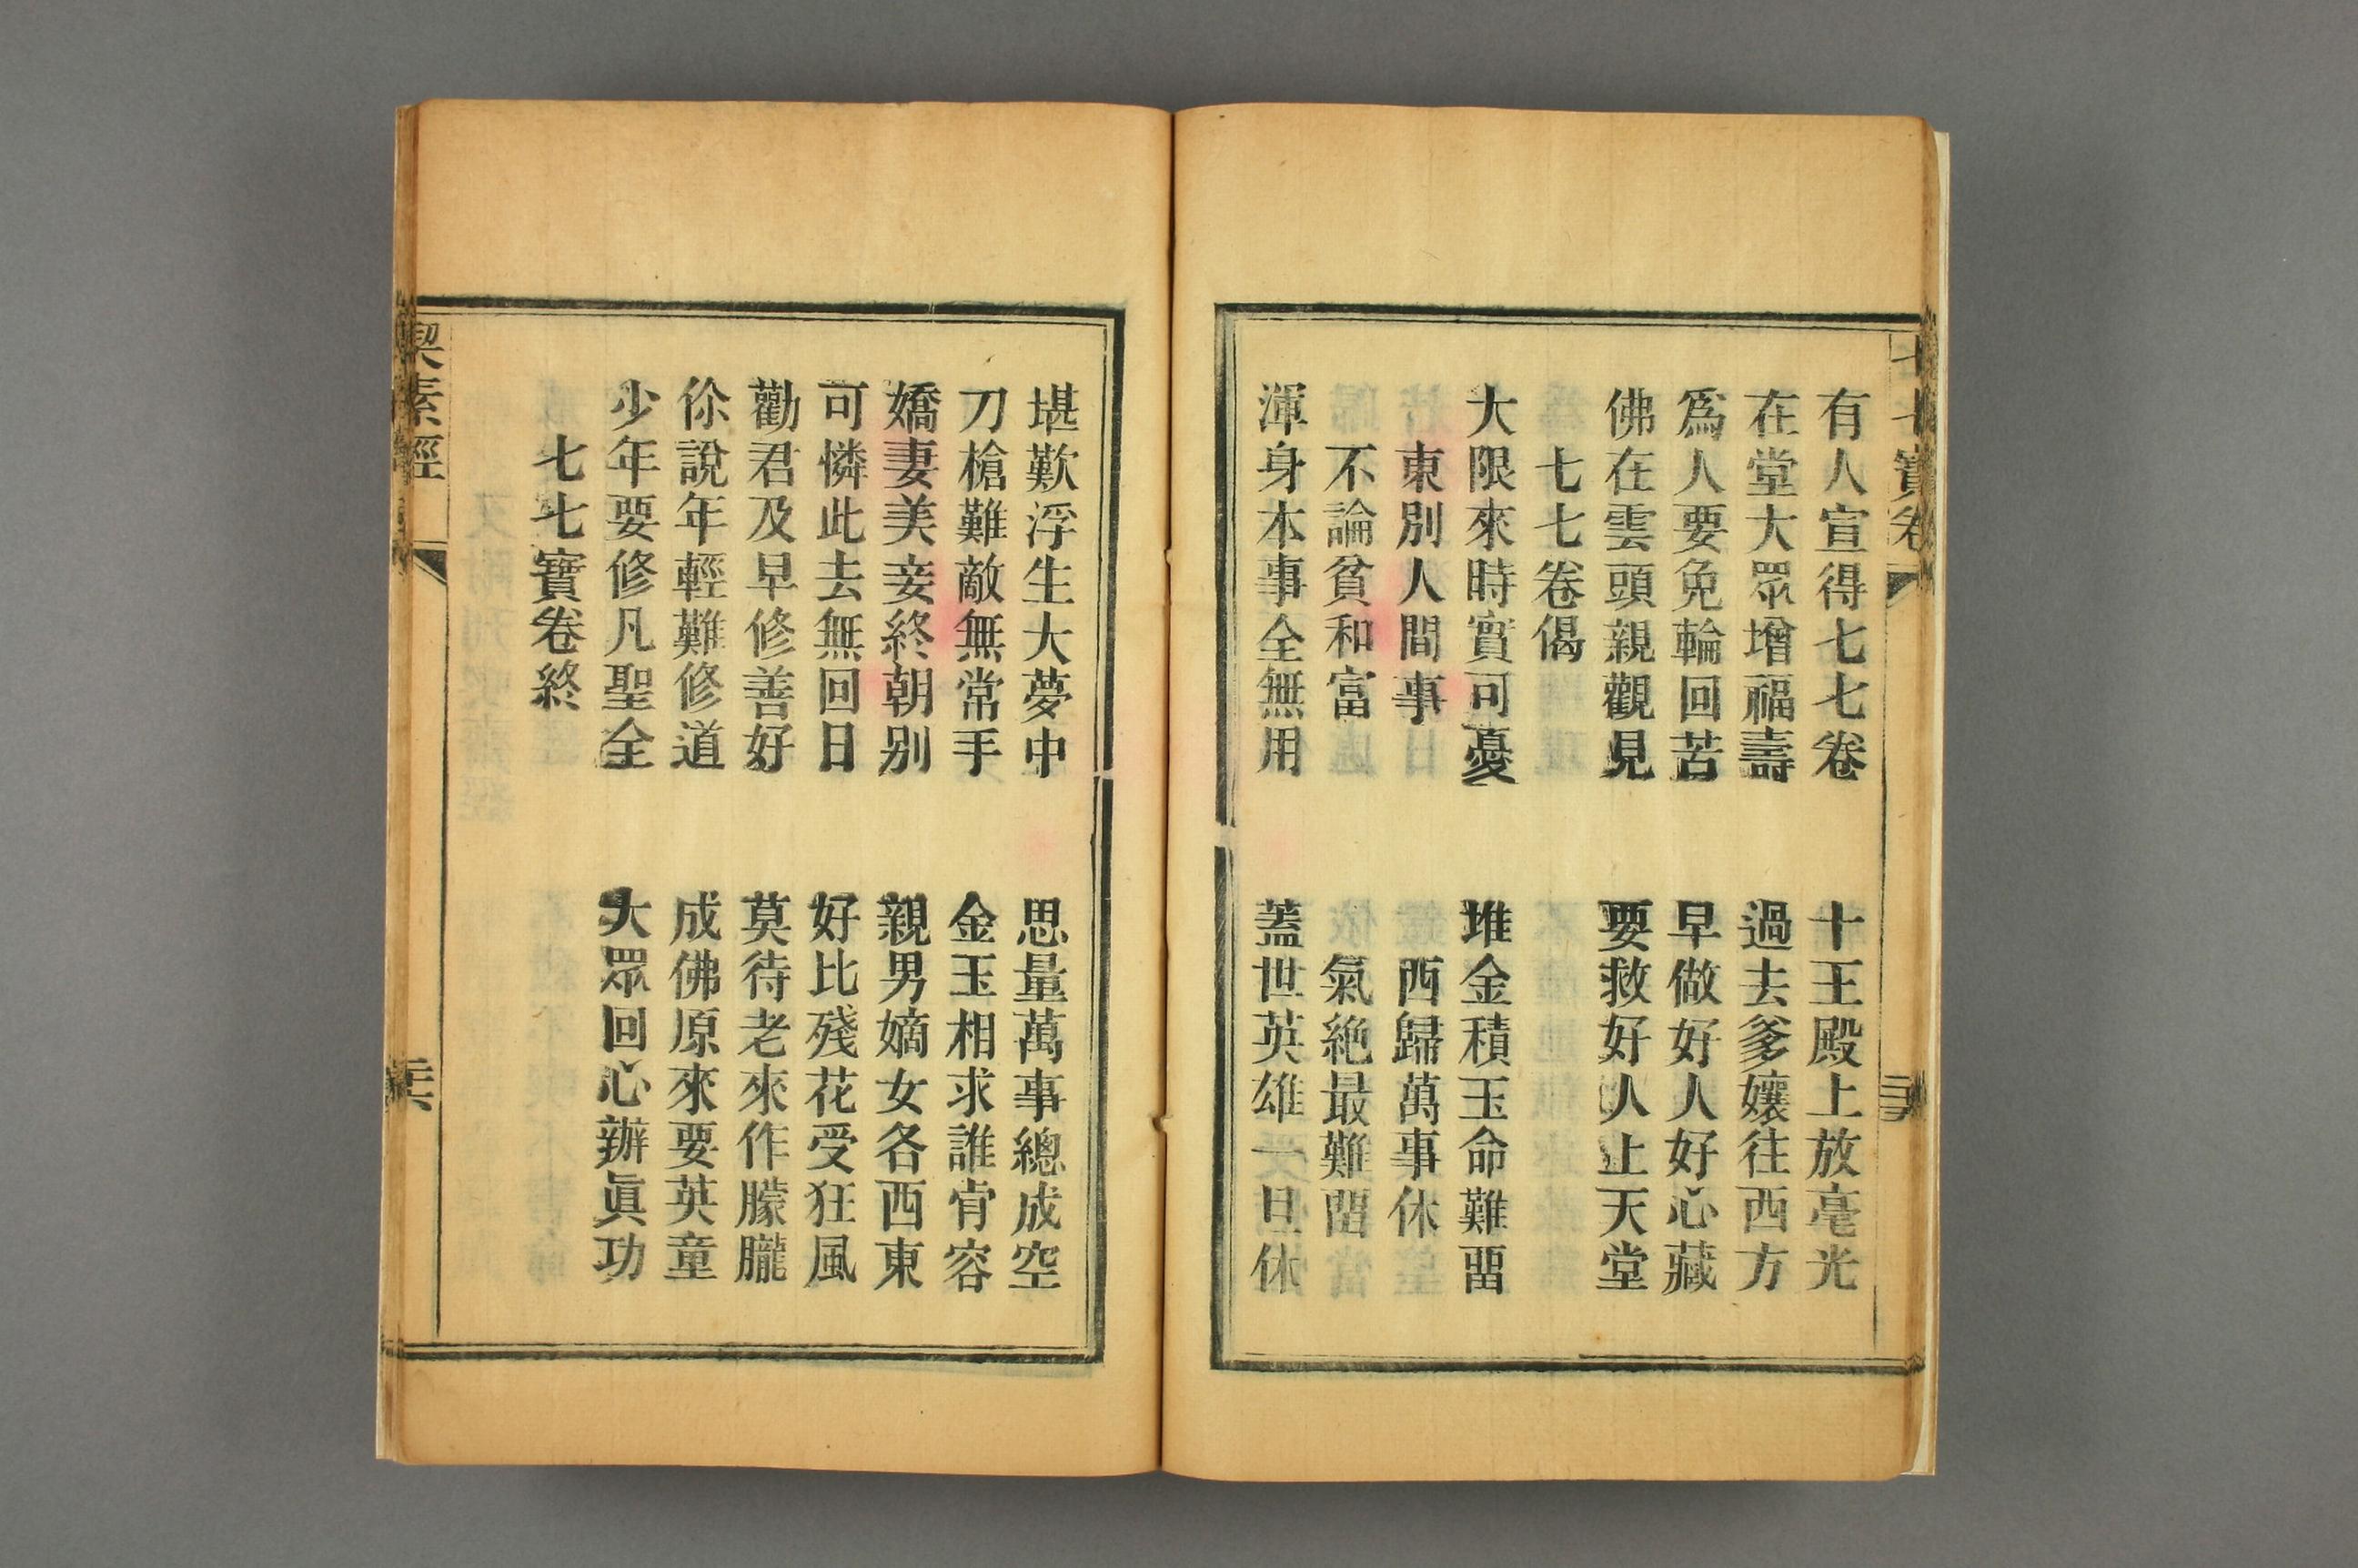 七七寶卷
有人宣得七七卷　十王殿上放毫光
在堂大眾增福壽　過去爹孃往西方
爲人要免輪回苦　早做好人好心藏
佛在雲頭親觀見　要救好人上天堂
七七卷偈
大限來時實可憂　堆金積玉命難畱
東別人間事　西歸萬事休
不論貧和富　氣絶最難畱
渾身本事全無用　蓋世英雄一旦休
堪歎浮生大夢中　思量萬事總成空
刀槍難敵無常手　金玉相求誰肯容
嬌妻美妾終朝別　親男嫡女各西東
可憐此去無回日　好比殘花受狂風
勸君及早修善好　莫待老來作朦朧
你說年輕難修道　成佛原來要英童
少年要修凡聖全　大眾回心辦眞功
七七寶卷終
喫素經